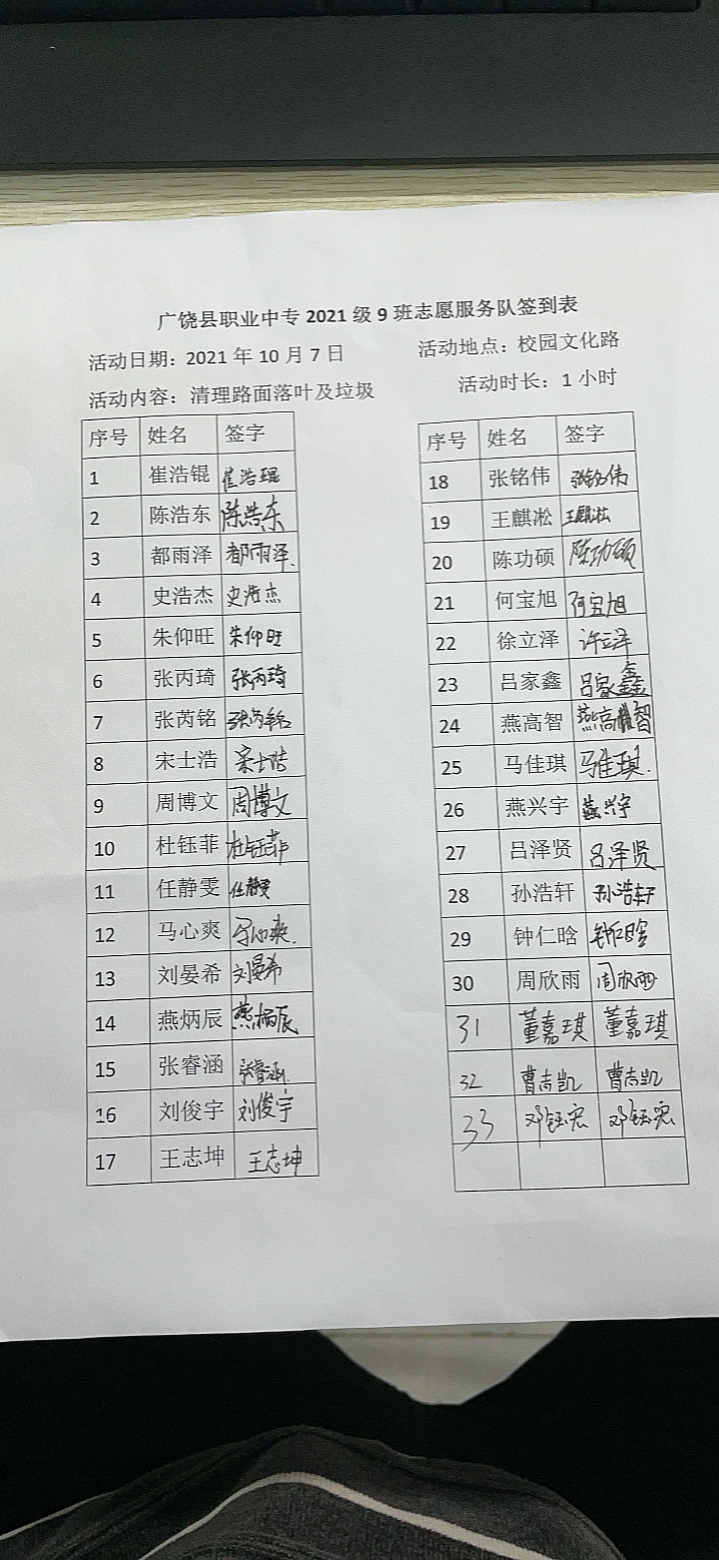 广饶县职业中专 2021 级 9 班志愿服务队签到表
活动日期：2021 年 10 月 7 日 活动地点：校园文化路
活动内容：清理路面落叶及垃圾 活动时长：1 小时
序号 姓名 签字
1 崔浩锟 崔浩琨
2 陈浩东 陈浩东
3 都雨泽 都雨泽.
4 史浩杰 史浩杰
5 朱仰旺 朱仰旺
6 张丙琦 张丙琦
7 张芮铭 张芮铭
8 宋士浩 宋士浩
9 周博文 周博文
10 杜钰菲 杜钰菲
11 任静雯 任静雯
12 马心爽 马心爽.
13 刘晏希 刘晏希
14 燕炳辰 燕炳辰
15 张睿涵 张睿涵
16 刘俊宇 刘俊宇
17 王志坤 王志坤
序号 姓名 签字
18 张铭伟 张铭伟
19 王麒凇 王麒凇
20 陈功硕 陈功硕
21 何宝旭 何宝旭
22 徐立泽 许立泽
23 吕家鑫 吕家鑫
24 燕高智 燕高智
25 马佳琪 马佳琪.
26 燕兴宇 燕兴宇
27 吕泽贤 吕泽贤
28 孙浩轩 孙浩轩
29 钟仁晗 钟仁晗
30 周欣雨 周欣雨
31 董嘉琪 董嘉琪
32 曹志凯 曹志凯
33 邓钰宏 邓钰宏